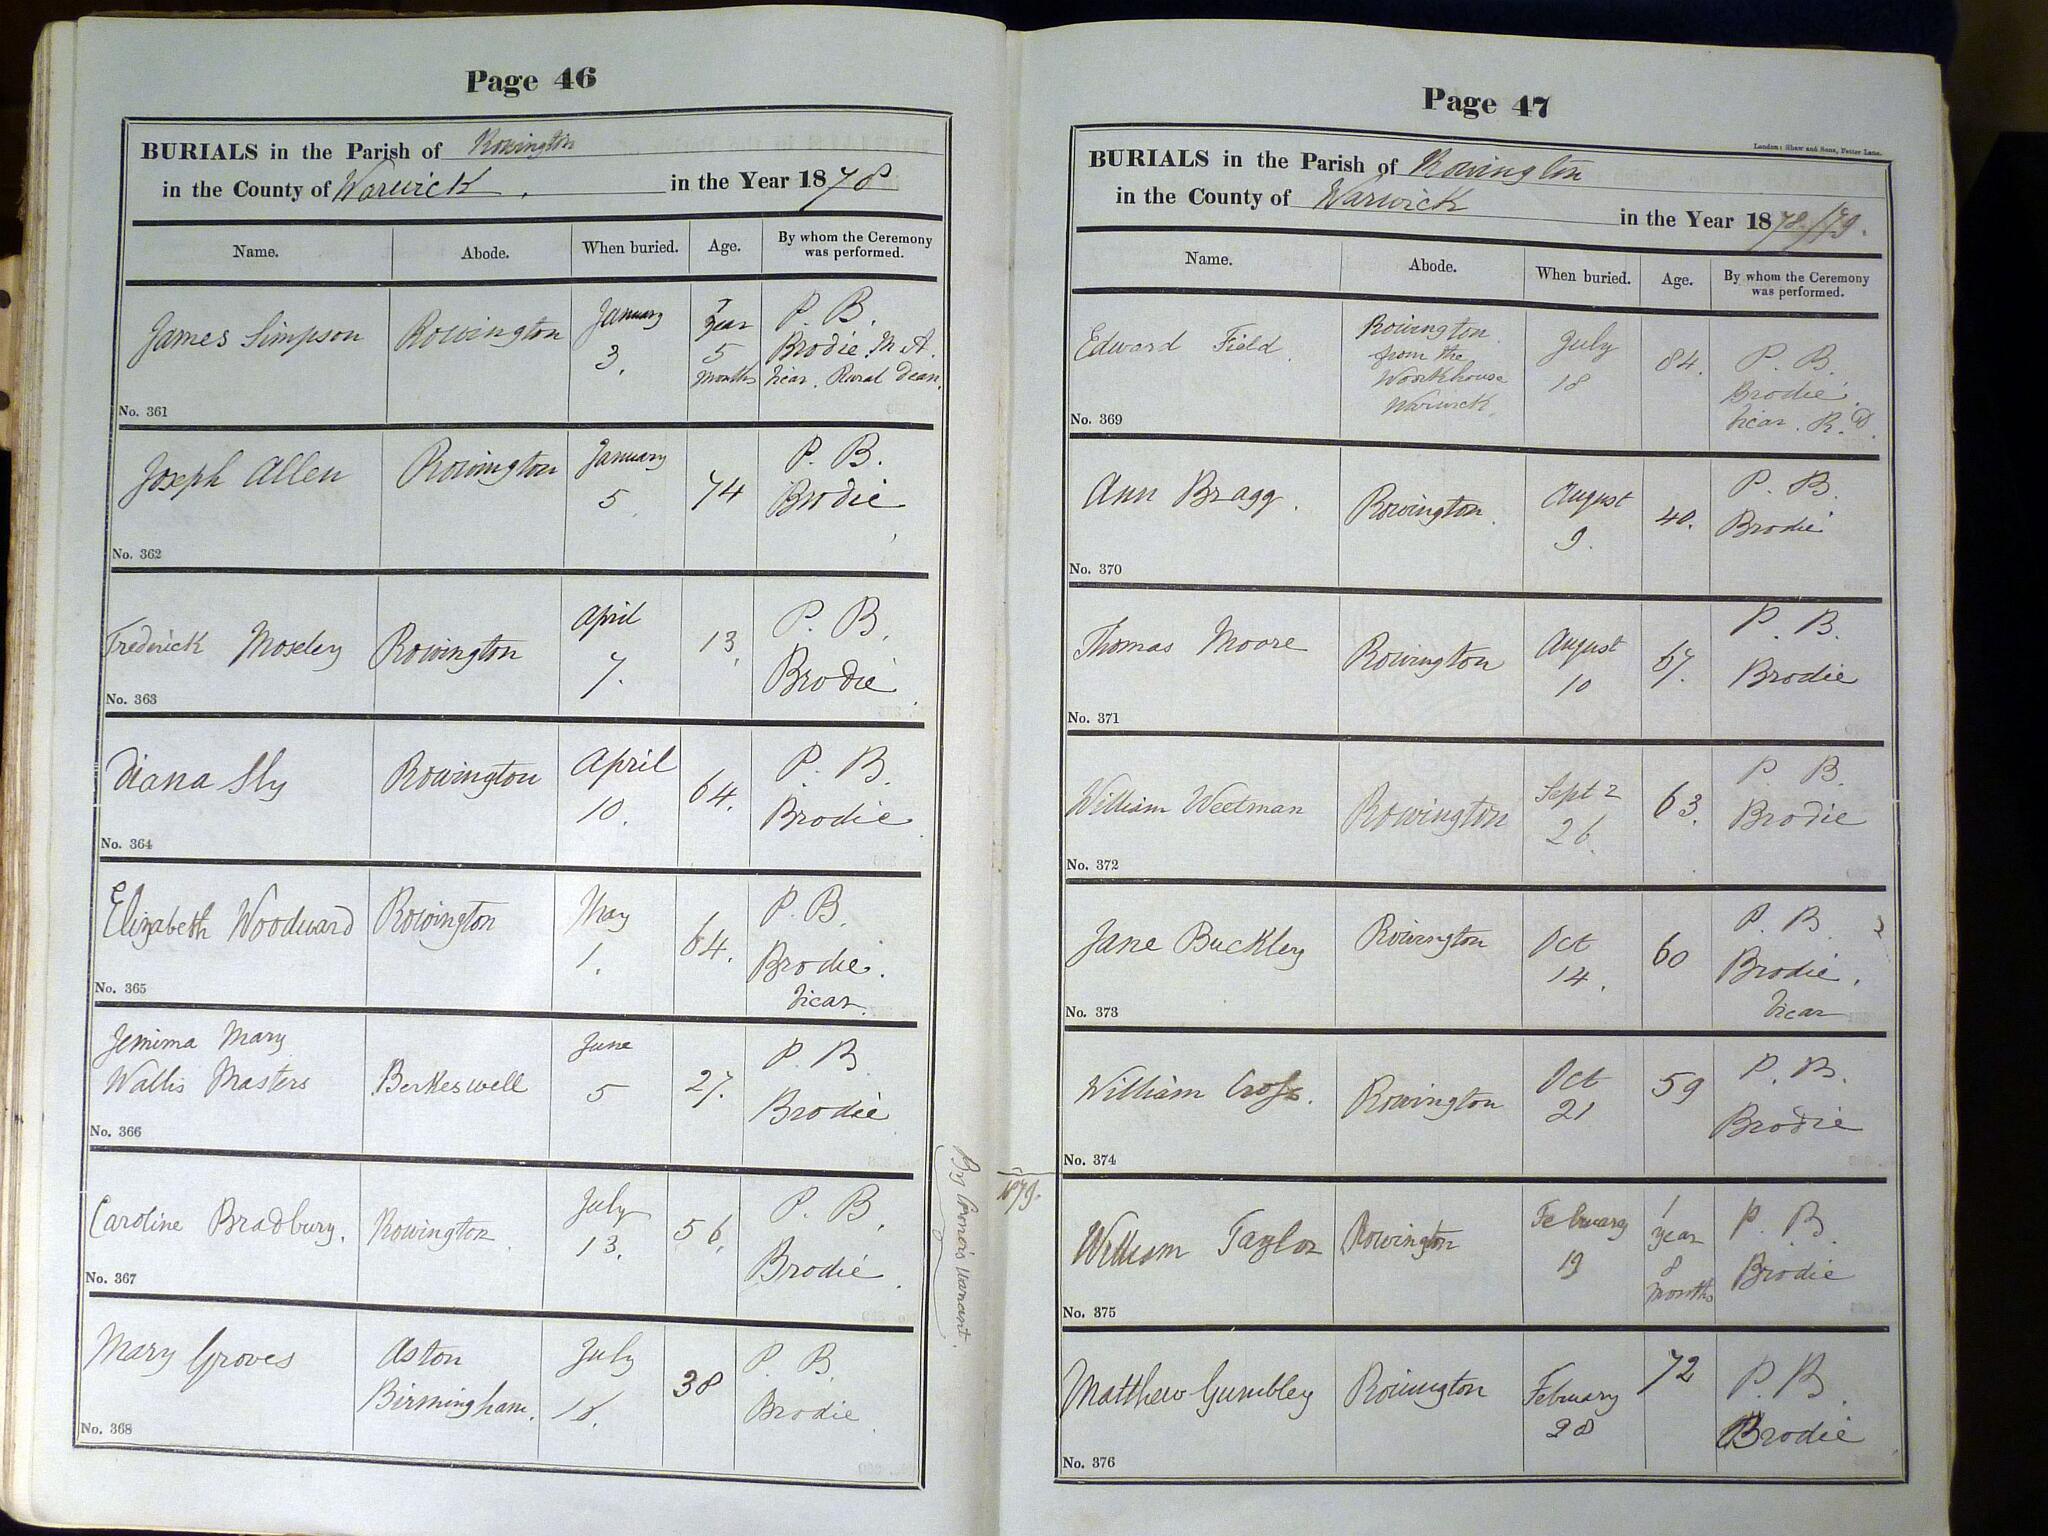 Page 46
BURIALS in the Parish of Rowington
in the County of Warwick. in the Year 1878
Name. Abode. When buried. Age. By whom the Ceremony was performed.
James Simpson Rowington January 3. 1 year 5 months P. B. Brodie. M. A. Vicar. Rural Dean.
No. 361
Joseph Allen Rowington January 5 74 P. B. Brodie
No. 362
Frederick Moseley Rowington April 7. 13 P. B. Brodie
No. 363
Diana Sly Rowington April 10. 64. P. B. Brodie
No. 364
Elizabeth Woodward Rowington May 1. 64. P. B. Brodie. Vicar.
No. 365
Jemima Mary
Wallis Masters Berkeswell June 5 27. P. B. Brodie
No. 366
Caroline Bradbury. Rowington July 13. 56. P. B. Brodie.
No. 367
Mary Groves Aston Birmingham. July 38 P. B. Brodie
No. 368
By Coroner's Warrant.
Page 47
London: Shaw and Sons, Fetter Lane.
BURIALS in the Parish of Rowington
in the County of Warwick in the Year 1878/79.
Name. Abode. When buried. Age. By whom the Ceremony was performed.
Edward Field. Rowington from the Workhouse Warwick. July 18 84. P. B. Brodie. Vicar. R. D.
No. 369
Ann Bragg. Rowington. August 9. 40. P. B. Brodie
No. 370
Thomas Moore Rowington August 10 67. P. B. Brodie
No. 371
William Weetman Rowington Sept 26 63. P. B. Brodie
No. 372
Jane Buckley Rowington Oct 14. 60 P. B. Brodie. Vicar
No. 373
William Cross. Rowington Oct 21 59 P. B. Brodie
No. 374
1879.
William Taylor Rowington February 19 1 year 8 months P. B. Brodie
No. 375
Matthew Gumbley Rowington February 28 72 P. B. Brodie
No. 376